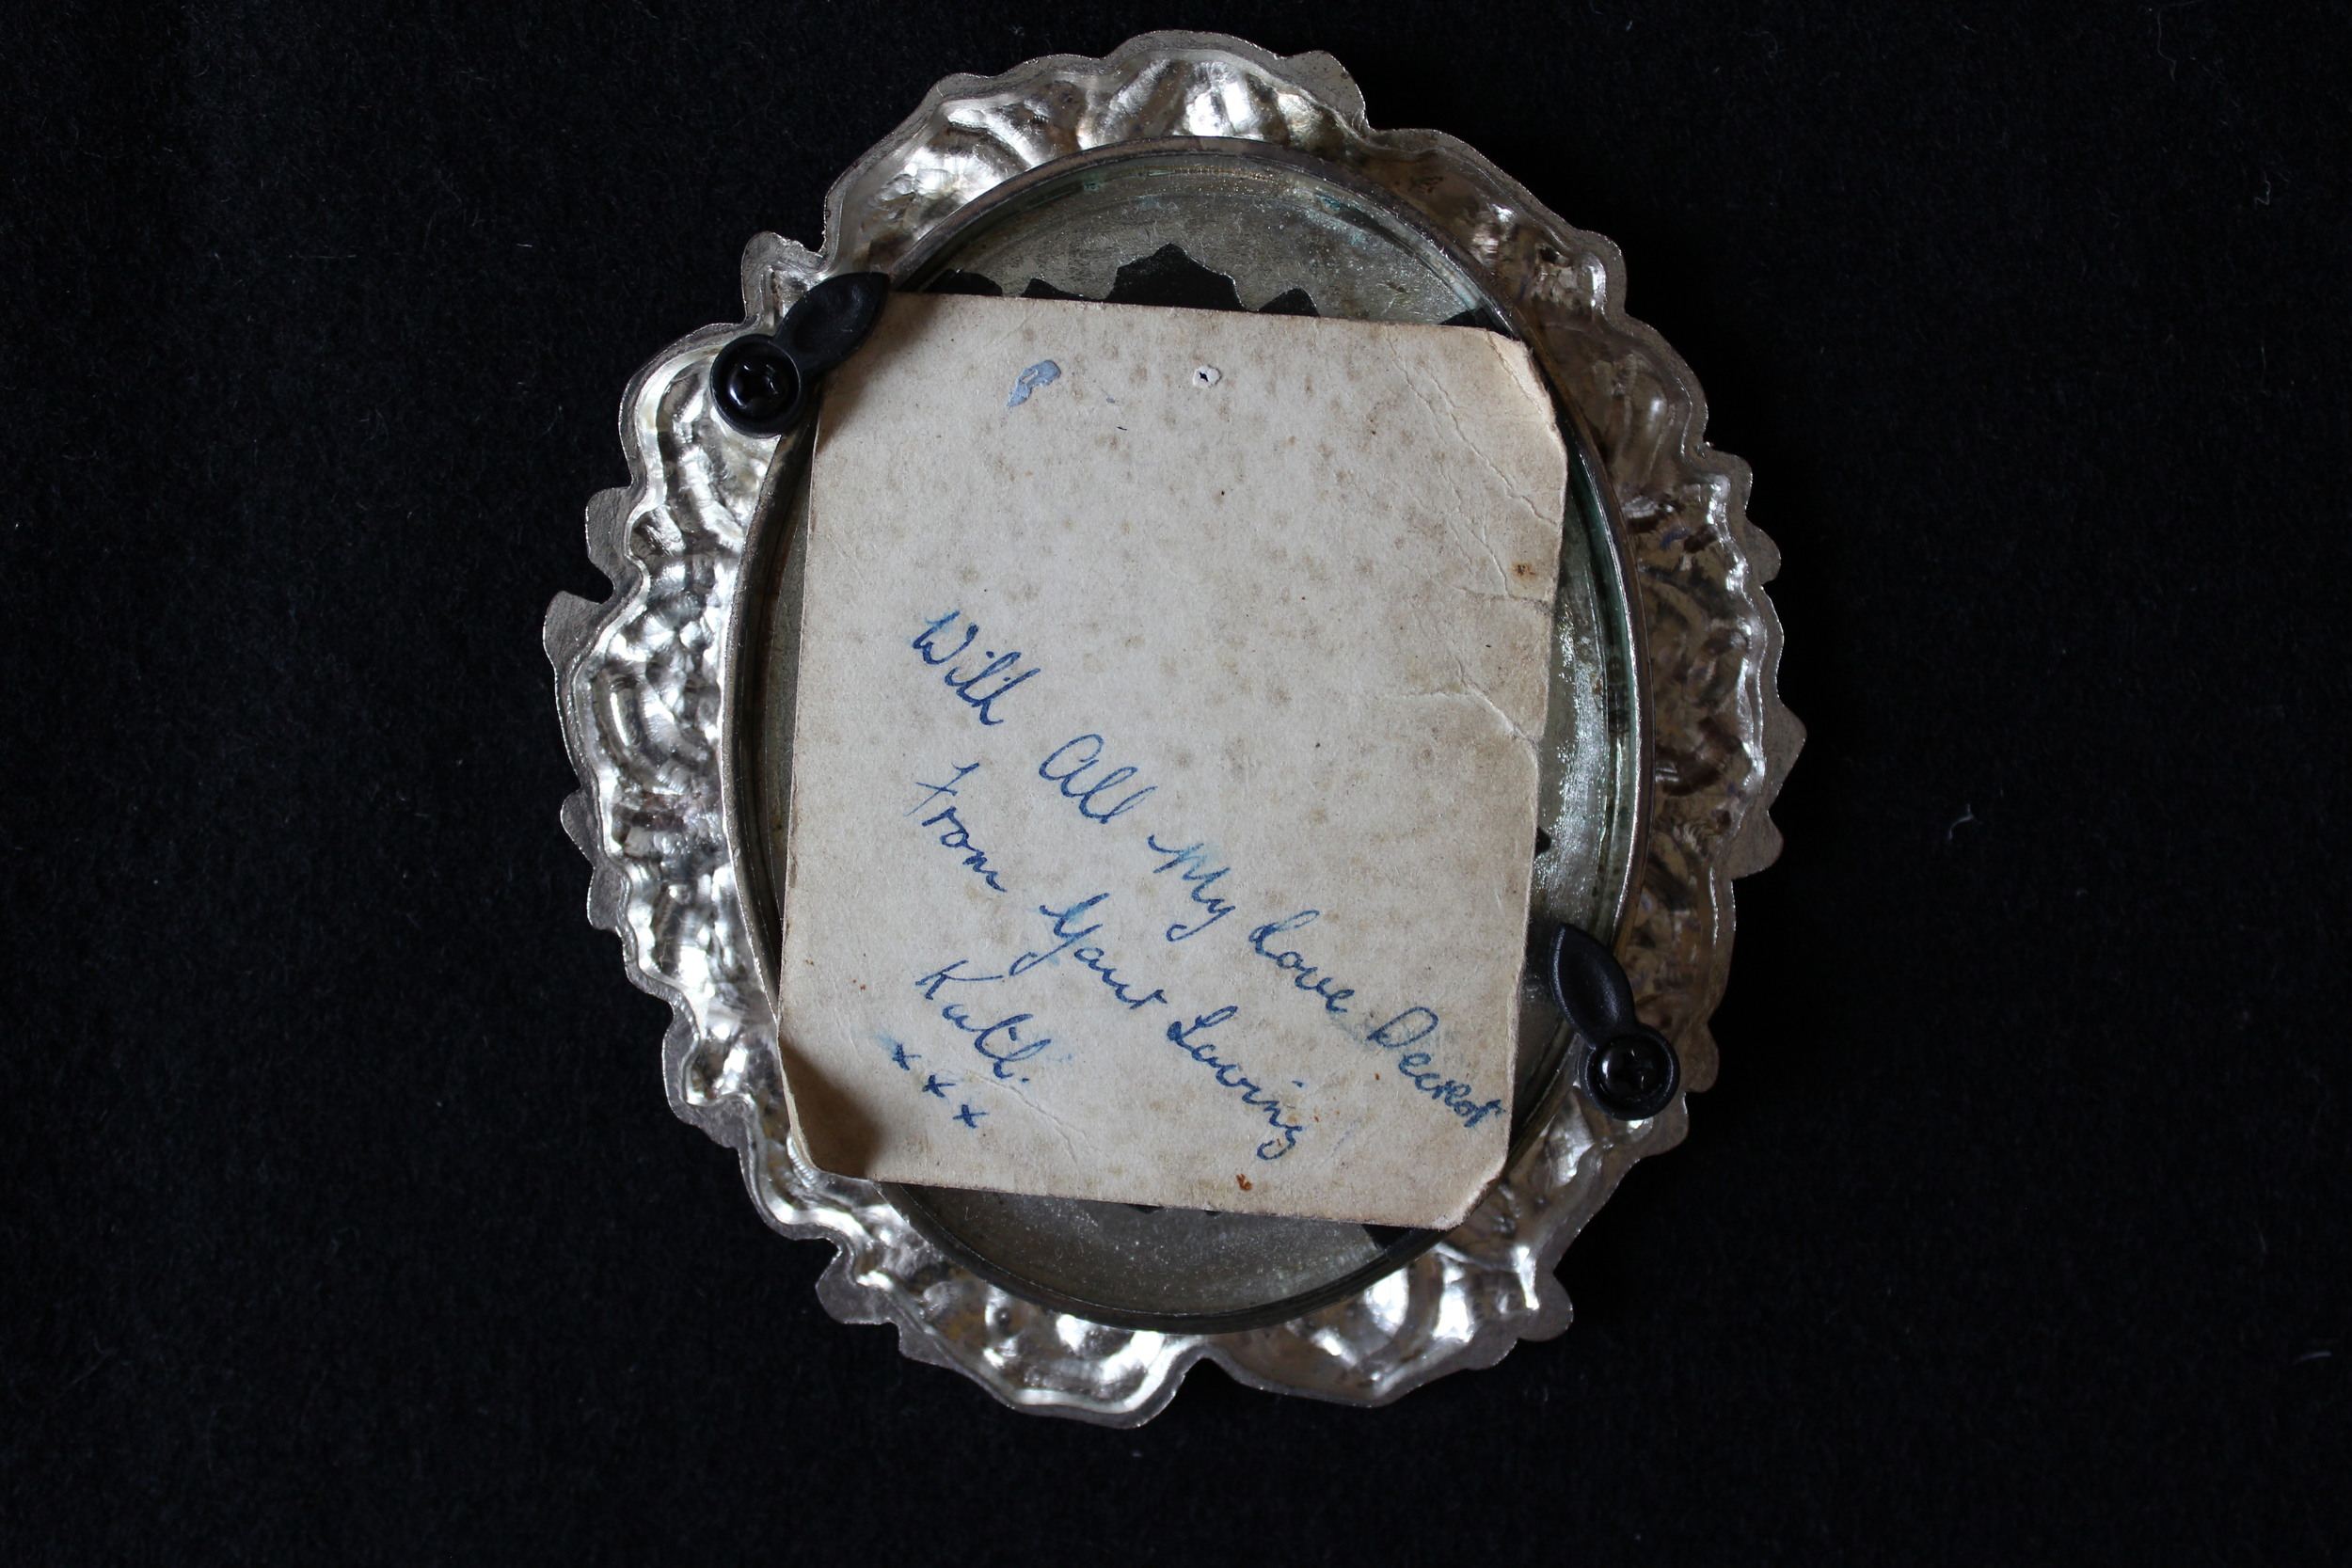 With All My Love Dearest
From Your Loving
Kath.
x x x